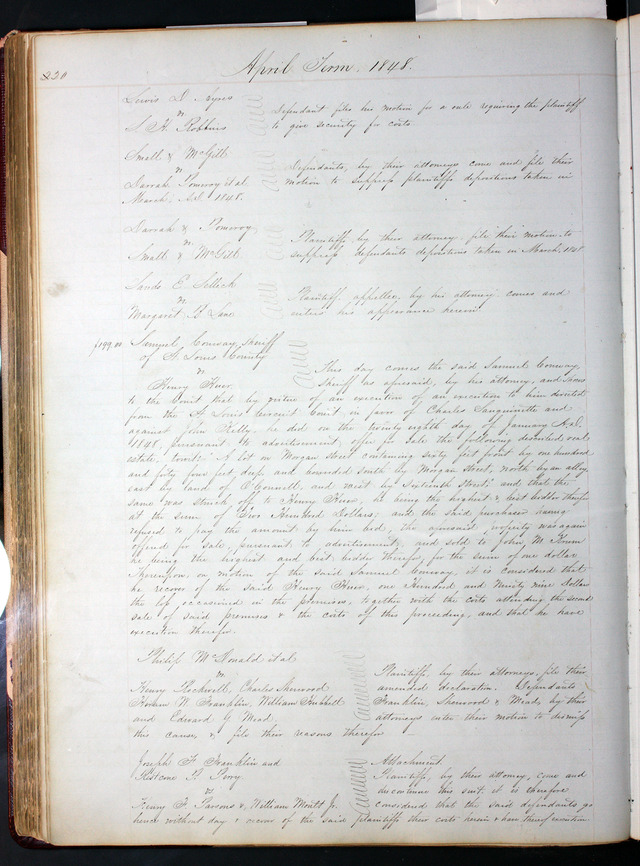 220
April Term 1848.
Lewis D. Ayres
vs
S. H. Robbins
Defendant files his motion for a rule requiring the plaintiff
to give security for costs.
Small & McGill
vs
Darrah, Pomeroy et al
March, A.D. 1848.
Defendants, by their attorneys come and file their
motion to suppress plaintiffs depositions taken in
Darrah & Pomeroy
vs
Small & McGill
Plaintiffs, by their attorney, file their motion to
suppress defendants depositions taken in March, 1848
E. Selleck
vs
Margaret B.
Plaintiff appellee, by his attorney comes and
enters his appearance herein
$199.00
Samuel Conway, Sheriff
of St Louis County
vs
Henry
This day comes the said Samuel Conway,
Sheriff as aforesaid, by his attorney, and shows
to the Court that by virtue of an execution of an execution to him directed
from the St Louis Circuit Court in favor of Charles Sanguinette and
against John Kelly, he did on the twenty eighth day of January A.D.
1848, pursuant to advertisement, offer for sale the following described real
estate, towit: A lot on Morgan Street containing sixty feet front by one hundred
and forty four feet deep, and bounded south by Morgan Street, North by an alley,
east by land of O'Connell, and west by Sixteenth Street; and that the
same was struck off to Henry he being the highest & best bidder therefor
at the sum of Two Hundred Dollars; and the said purchaser having
refused to pay the amount by him bid, the aforesaid property was again
offered for sale, pursuant to advertisement, and sold to John M.
he being the highest and best bidder therefor, for the sum of one dollar
Thereupon, on motion of the said Samuel Conway, it is considered that
he recover of the said Henry one Hundred and Ninety nine Dollars
the loss occasioned in the premises, together with the costs attending the second
sale of said premises & the costs of this proceeding, and that he have
execution therefor.
Philip McDonald et al
vs
Henry Rockwell, Charles Sherwood
W. Franklin, William Hubbell
and Edward G. Mead
this cause, & file their reasons therefor
Plaintiffs, by their attorneys, file their
amended declaration. Defendants
Franklin, Sherwood & Mead, by their
attorneys enter their motion to dismiss
Joseph F. Franklin and
B. Perry
vs
Henry F. Parsons & William Jr.
Attachment.
Plaintiffs, by their attorney, come and
discontinue this suit: it is therefore
considered that the said defendants go
hence without day & recover of the said plaintiffs their costs herein & have thereof execution